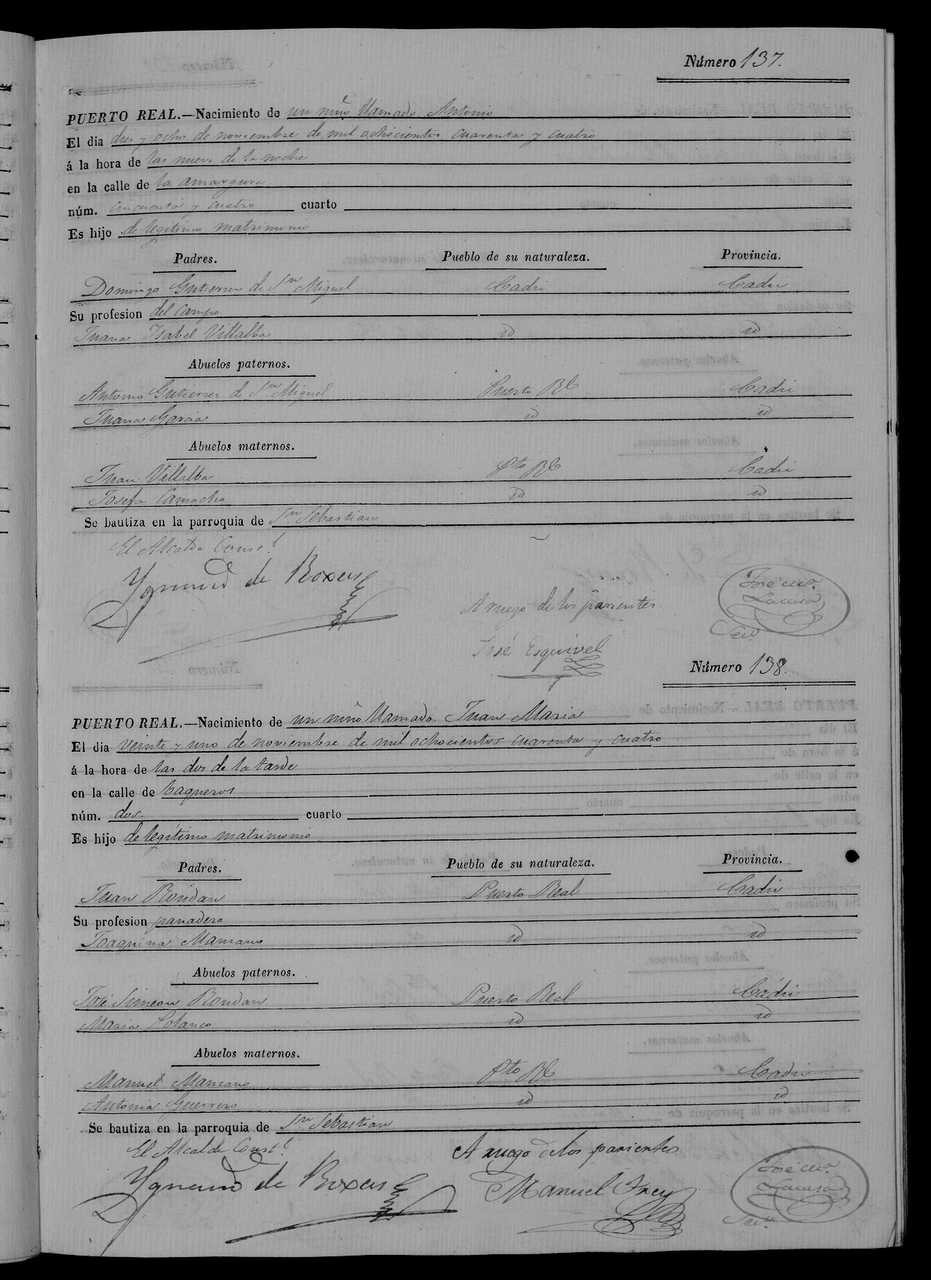 Número 137.
PUERTO REAL.—Nacimiento de un niño llamado Antonio
El dia diez y ocho de noviembre de mil ochocientos cuarenta y cuatro
á la hora de las nueve de la noche
en la calle de la amargura
núm. cincuenta y cuatro cuarto
Es hijo de legítimo matrimonio
Padres. Pueblo de su naturaleza. Provincia.
Domingo Gutierrez de Sn Miguel Cadiz Cadiz
Su profesion del campo
Juana Isabel Villalba id id
Abuelos paternos.
Antonio Gutierrez d Sn Miguel Puerto Rl Cadiz
Juana Garcia id id
Abuelos maternos.
Juan Villalba Pto Rl Cadiz
Josefa Camacho id id
Se bautiza en la parroquia de Sn Sebastian
El Alcalde Const.l
Ygnacio de
A ruego de los parientes
José Esquivel
José Ma.
Lacasa
Srio
Número 138.
PUERTO REAL.—Nacimiento de un niño llamado Juan Maria
El dia veinte y uno de noviembre de mil ochocientos cuarenta y cuatro
á la hora de las dos de la tarde
en la calle de Vaqueros
núm. dos cuarto
Es hijo de legítimo matrimonio
Padres. Pueblo de su naturaleza. Provincia.
Juan Rondan Puerto Real Cadiz
Su profesion panadero
Joaquina Manzano id id
Abuelos paternos.
José Simeon Rondan Puerto Real Cadiz
Maria Polanco id id
Abuelos maternos.
Manuel Manzano Pto Rl Cadiz
Antonia Guerrero id id
Se bautiza en la parroquia de Sn Sebastian
El Alcalde Const.l A ruego de los parientes
Ygnacio de Manuel
José Ma.
Lacasa
Srio.